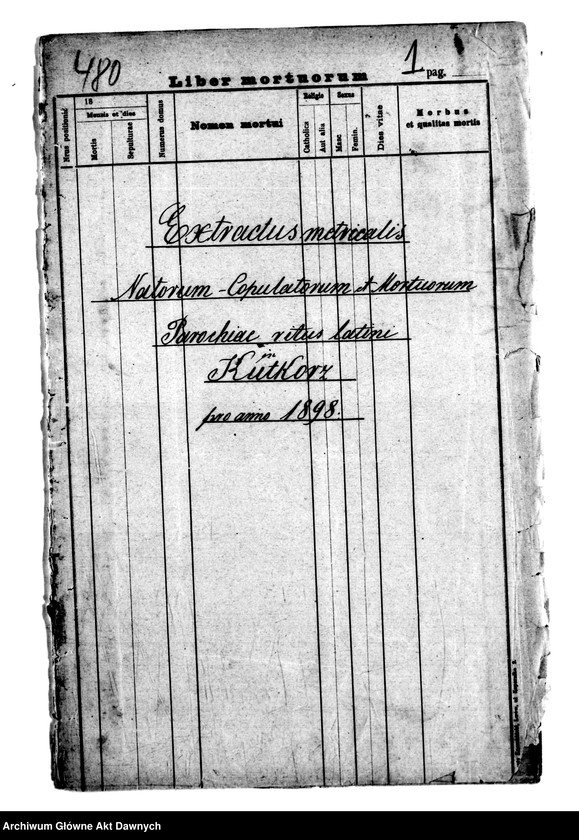 480
1 pag.
Liber mortuorum
Nrus positionis
18
Mensis et dies
Mortis
Sepulturae
Numerus domus
Nomen mortui
Religio
Catholica
Aut alia
Sexus
Masc
Femin.
Dies vitae
Morbus
et qualitas mortis
Extractus metricalis
Natorum - Copulatorum et Mortuorum
Parochiae ritus latini
in
Kutkorz
pro anno 1898.
Archiwum Główne Akt Dawnych